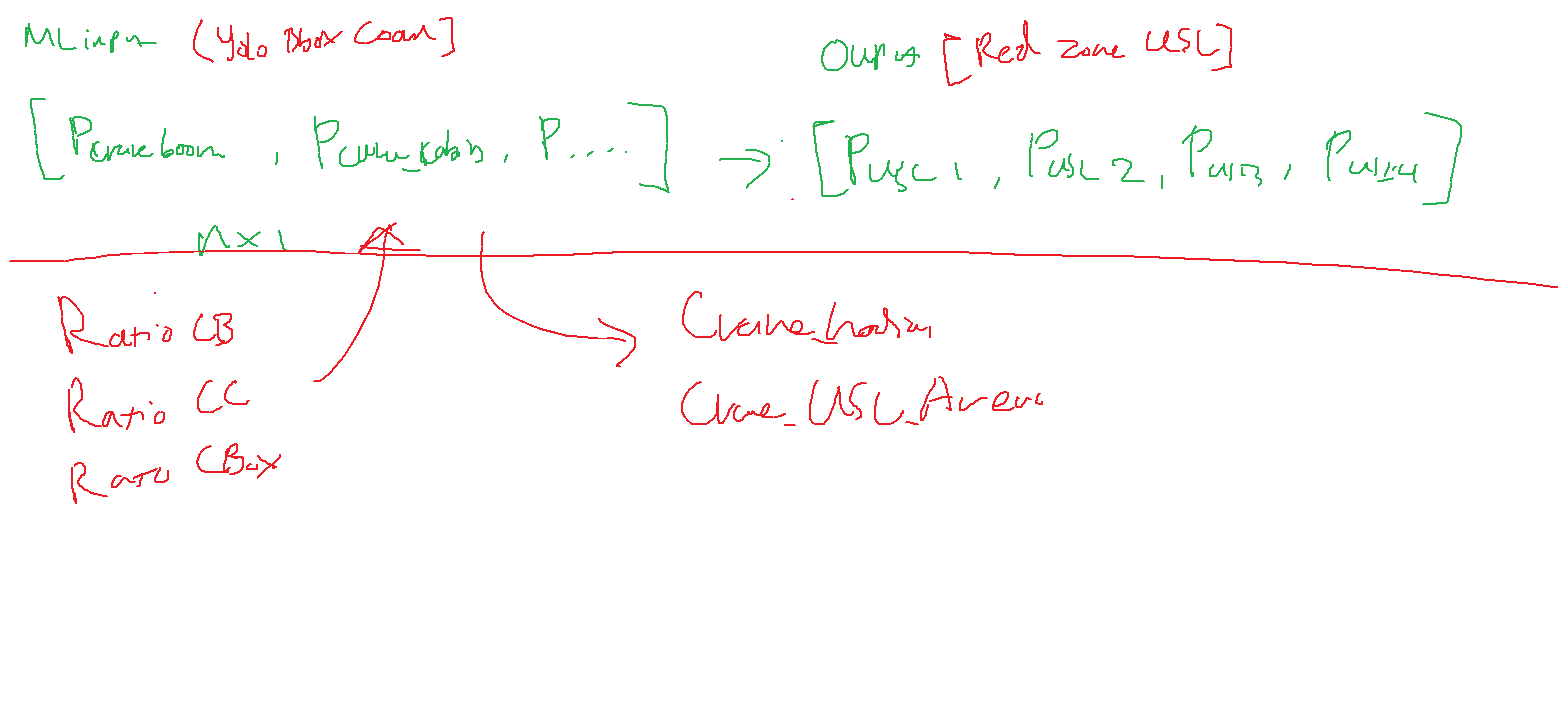 ML input (Yolo Bbox Coor]
Output [Red Zone USL]
[P crane boom, P..... ] → [P USL 1, P USL 2, P USL3, P USL4]
M×1
Ratio CB
Ratio CC
Ratio CBox
Crane_
Crane_USL_